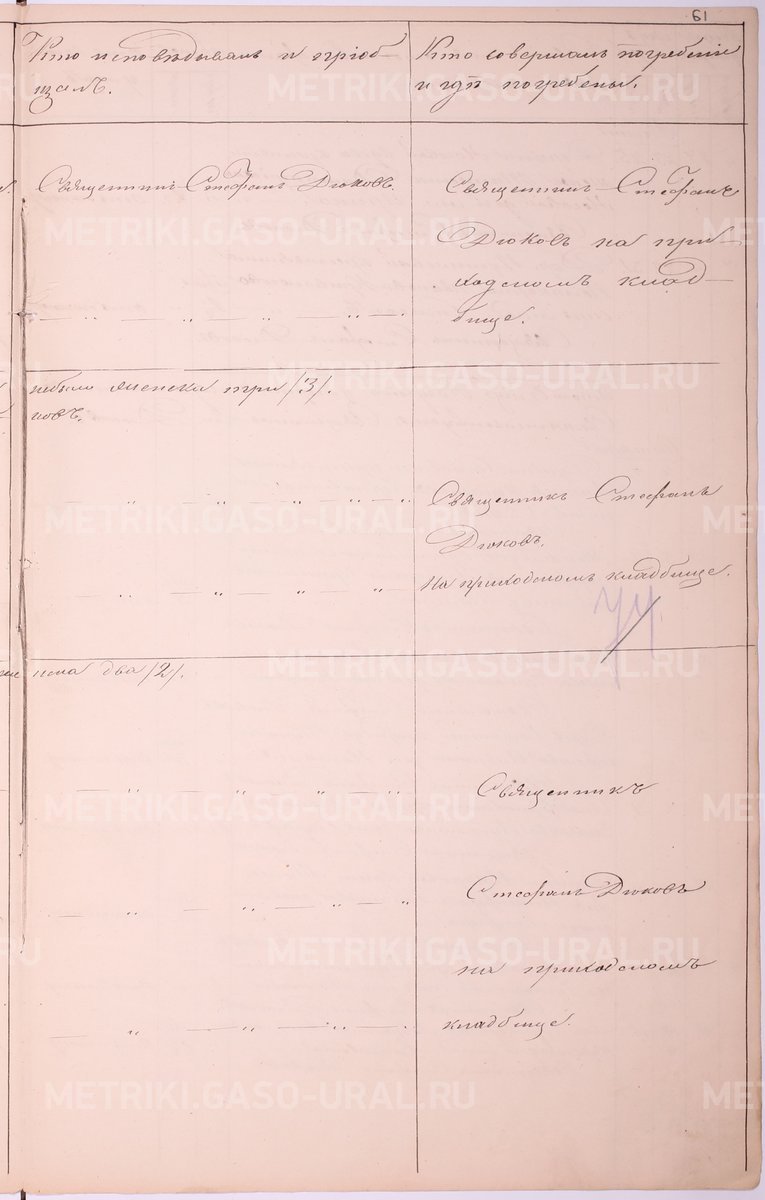 61
Кто исповѣдывалъ и пріоб-
щалъ.
Кто совершалъ погребеніе
и гдѣ погребены.
Священникъ Стефанъ Дюковъ.
Священникъ Стефанъ
Дюковъ на при-
ходскомъ клад-
бище.
— „ — „ — „ — „ — .
женска три /3/.
ковъ.
— „ — „ — „ — „ — „
Священникъ Стефанъ
Дюковъ.
— „ — „ — „ — „ —
На приходскомъ кладбище.
два /2/.
— „ — „ — „ — „
Священникъ
— „ — „ — „ — „
Стефанъ Дюковъ
на приходскомъ
— „ — „ — „ — .
кладбище.
METRIKI.GASO-URAL.RU